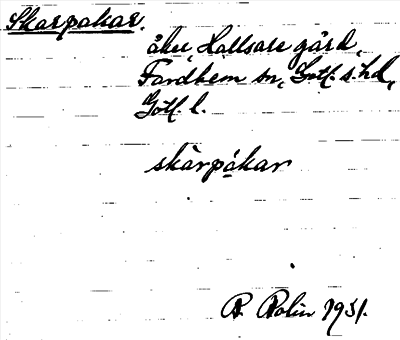 Skarpåkar.
åker, Hallsare gård,
Fardhem sn, Gotl. s. hd,
Gotl. l.
skàrpákar
R. Rolin 1931.